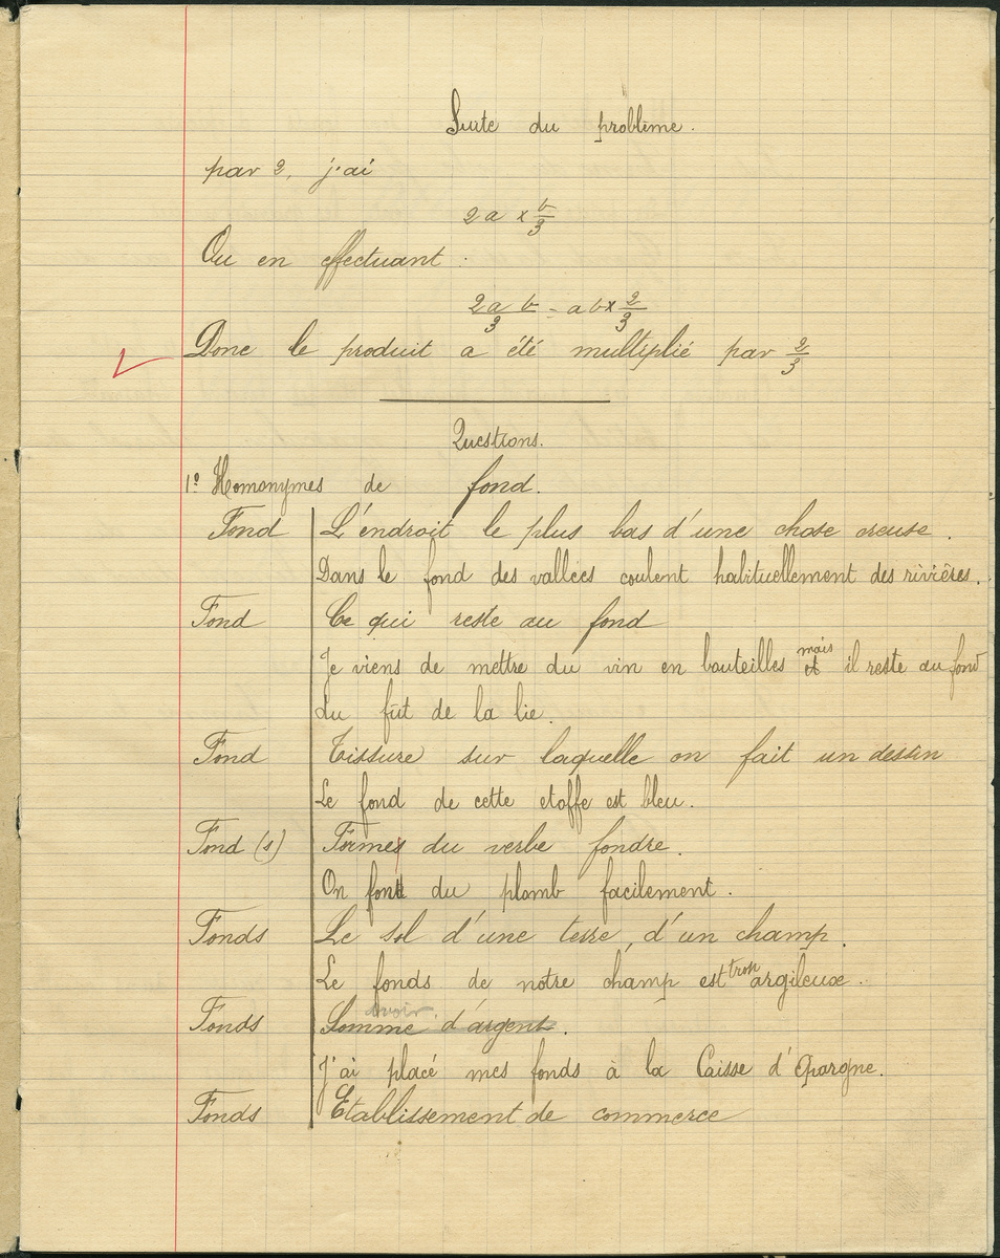 Suite du problème.
par 2, j'ai
2a × b/3
Ou en effectuant :
2a b/3 = ab × 2/3
Donc le produit a été multiplié par 2/3
Questions.
1º Homonymes de fond.
Fond L'endroit le plus bas d'une chose creuse.
Dans le fond des vallées coulent habituellement des rivières.
Fond Ce qui reste au fond
Je viens de mettre du vin en bouteilles et mais il reste au fond
du fût de la lie.
Fond Tissure sur laquelle on fait un dessin
Le fond de cette etoffe est bleu.
Fond (s) Formes du verbe fondre.
On fond du plomb facilement.
Fonds Le sol d'une terre, d'un champ.
Le fonds de notre champ est trop argileux.
Fonds Somme d'argent. avoir
J'ai placé mes fonds à la Caisse d'Epargne.
Fonds Etablissement de commerce